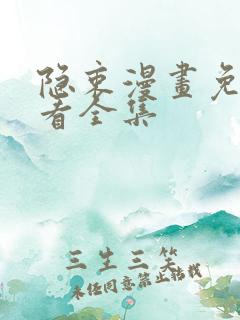 隐束漫畫免
看全集
三生三笑
未经同意禁止转载